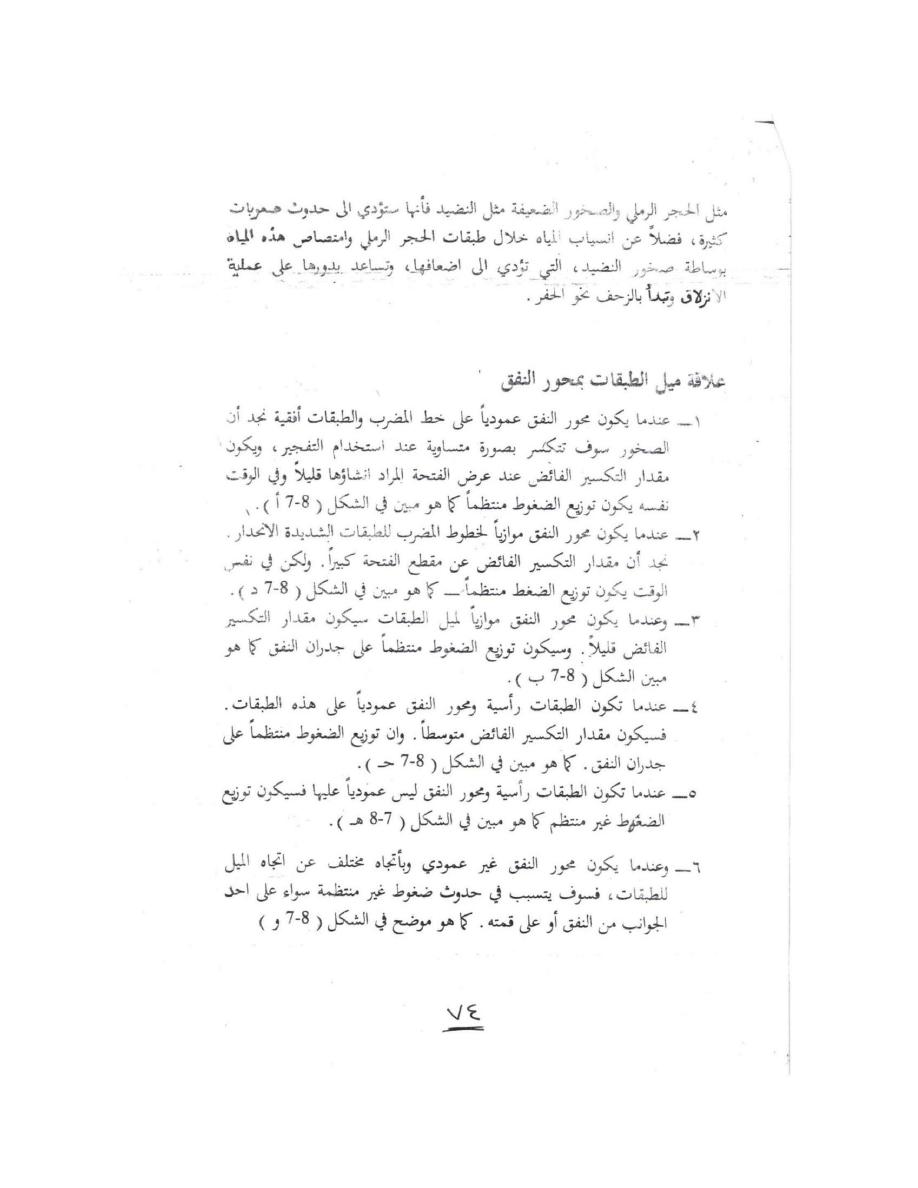 مثل الحجر الرملي والصخور الضعيفة مثل النضيد فأنها ستؤدي الى حدوث صعوبات
كثيرة، فضلاً عن انسياب المياه خلال طبقات الحجر الرملي وامتصاص هذه المياه
بوساطة صخور النضيد، التي تؤدي الى اضعافها، وتساعد بدورها على عملية
الانزلاق وتبدأ بالزحف نحو الحفر .
علاقة ميل الطبقات بمحور النفق
١ــ عندما يكون محور النفق عمودياً على خط المضرب والطبقات أفقية نجد أن
الصخور سوف تتكسر بصورة متساوية عند استخدام التفجير، ويكون
مقدار التكسير الفائض عند عرض الفتحة المراد انشاؤها قليلاً وفي الوقت
نفسه يكون توزيع الضغوط منتظماً كما هو مبين في الشكل ( 8-7 أ ).
٢ــ عندما يكون محور النفق موازياً لخطوط المضرب للطبقات الشديدة الانحدار .
نجد أن مقدار التكسير الفائض عن مقطع الفتحة كبيراً. ولكن في نفس
الوقت يكون توزيع الضغط منتظماً ــ كما هو مبين في الشكل ( 8-7 د ).
٣ــ وعندما يكون محور النفق موازياً لميل الطبقات سيكون مقدار التكسير
الفائض قليلاً. وسيكون توزيع الضغوط منتظماً على جدران النفق كما هو
مبين الشكل ( 8-7 ب ).
٤ــ عندما تكون الطبقات رأسية ومحور النفق عمودياً على هذه الطبقات.
فسيكون مقدار التكسير الفائض متوسطاً. وان توزيع الضغوط منتظماً على
جدران النفق. كما هو مبين في الشكل ( 8-7 حـ ).
٥ــ عندما تكون الطبقات رأسية ومحور النفق ليس عمودياً عليها فسيكون توزيع
الضغوط غير منتظم كما هو مبين في الشكل ( 7-8 هـ ).
٦ــ وعندما يكون محور النفق غير عمودي وبأتجاه مختلف عن اتجاه الميل
للطبقات، فسوف يتسبب في حدوث ضغوط غير منتظمة سواء على احد
الجوانب من النفق أو على قمته. كما هو موضح في الشكل ( 8-7 و )
٧٤